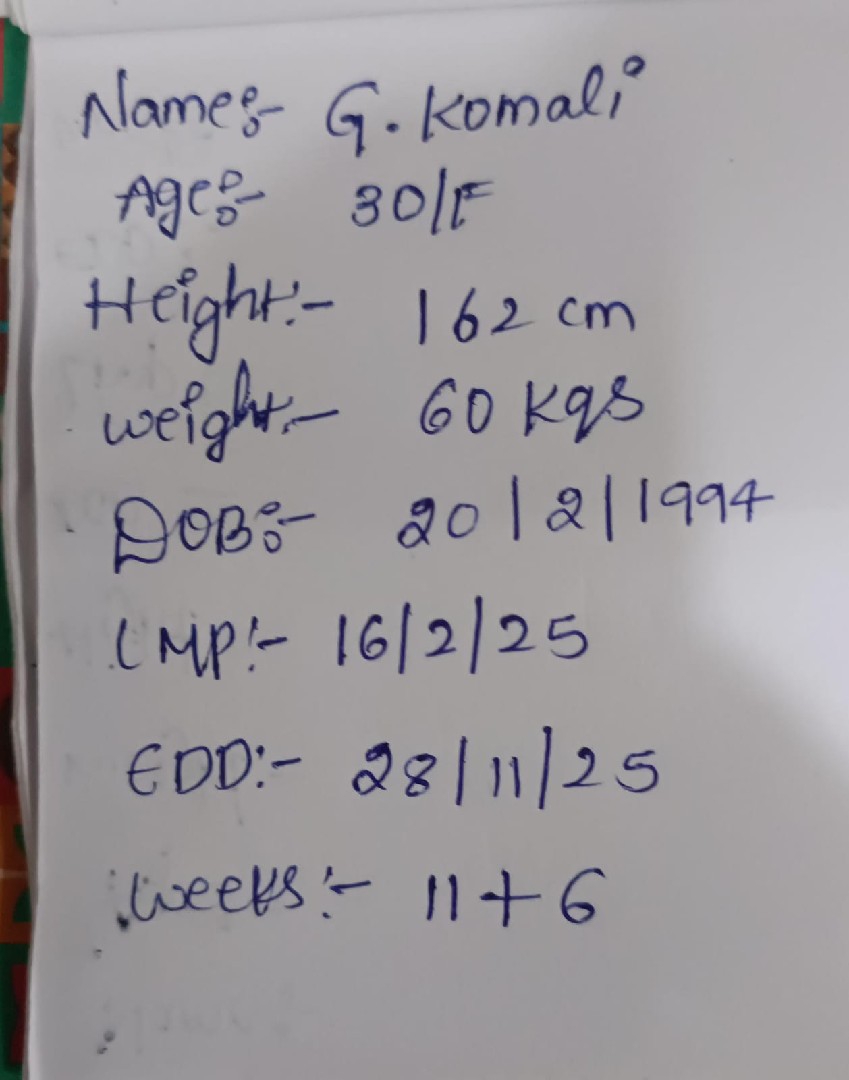 Name:- G. Komali
Age:- 30/F
Height:- 162 cm
weight:- 60 kgs
DOB:- 20/2/1994
LMP:- 16/2/25
EDD:- 28/11/25
weeks:- 11+6